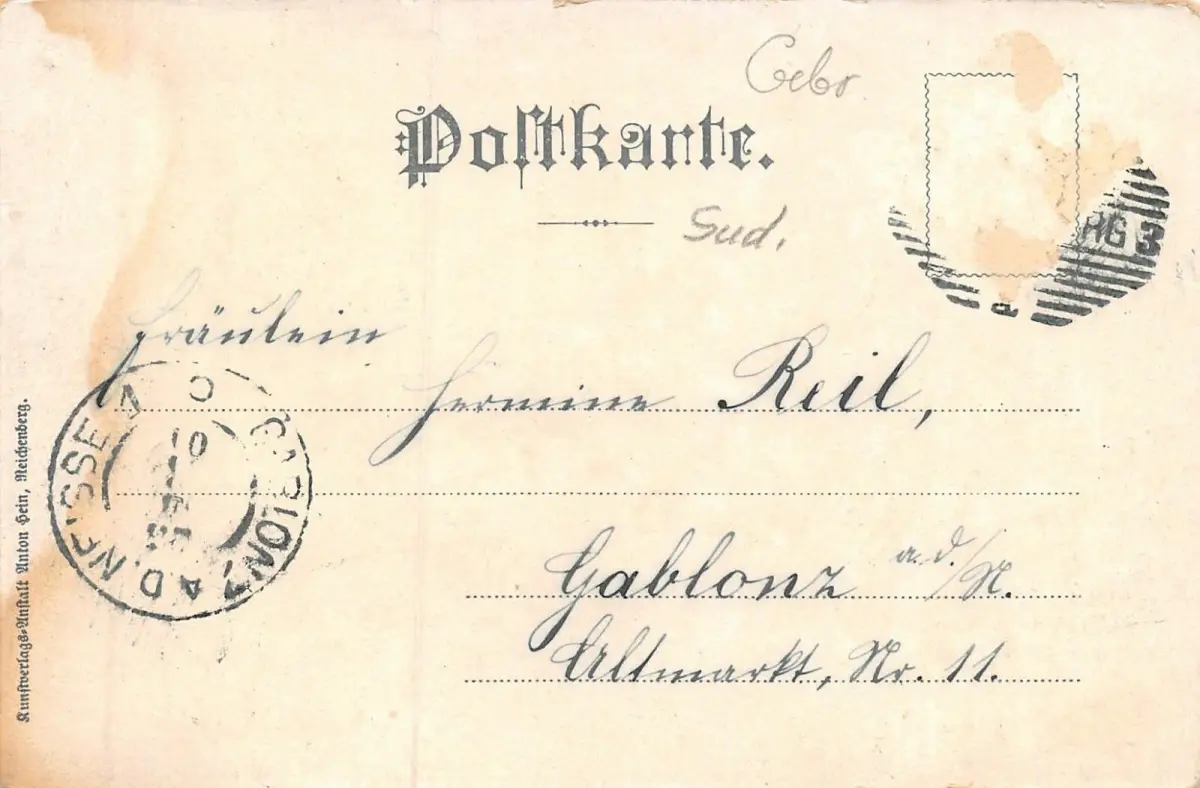 Gebr
Postkarte.
Sud.
RG 3
a
Fräulein
Hermine Reil,
Gablonz a.d./N.
Altmarkt, Nr. 11.
GABLONZ A.D. NEISSE
01
Kunstverlags-Anstalt Anton Hein, Reichenberg.